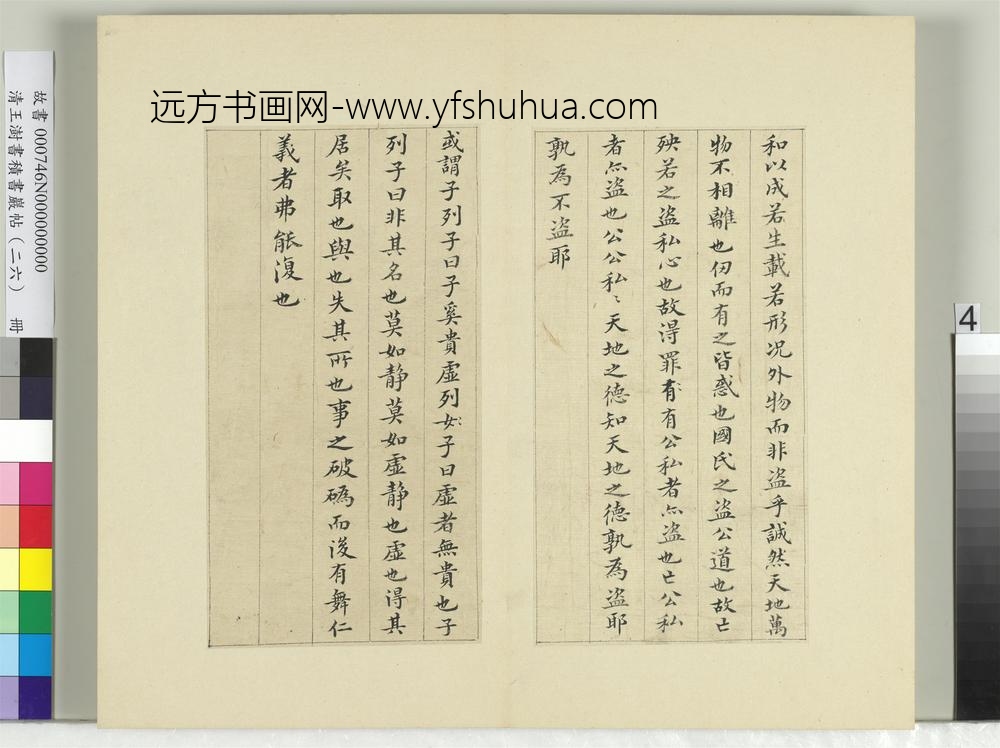 远方书画网-www.yfshuhua.com
和以成若生載若形况外物而非盜乎誠然天地萬
物不相離也仞而有之皆惑也國氏之盜公道也故亡
殃若之盜私心也故得罪有有公私者亦盜也亡公私
者亦盜也公公私〻天地之德知天地之德孰為盜耶
孰為不盜耶
或謂子列子曰子奚貴虛列子曰虛者無貴也子
列子曰非其名也莫如静莫如虛静也虛也得其
居矣取也與也失其所也事之破䃣而後有舞仁
義者弗能復也
故書 000746N000000000
清王澍書積書巖帖（二六） 冊
4